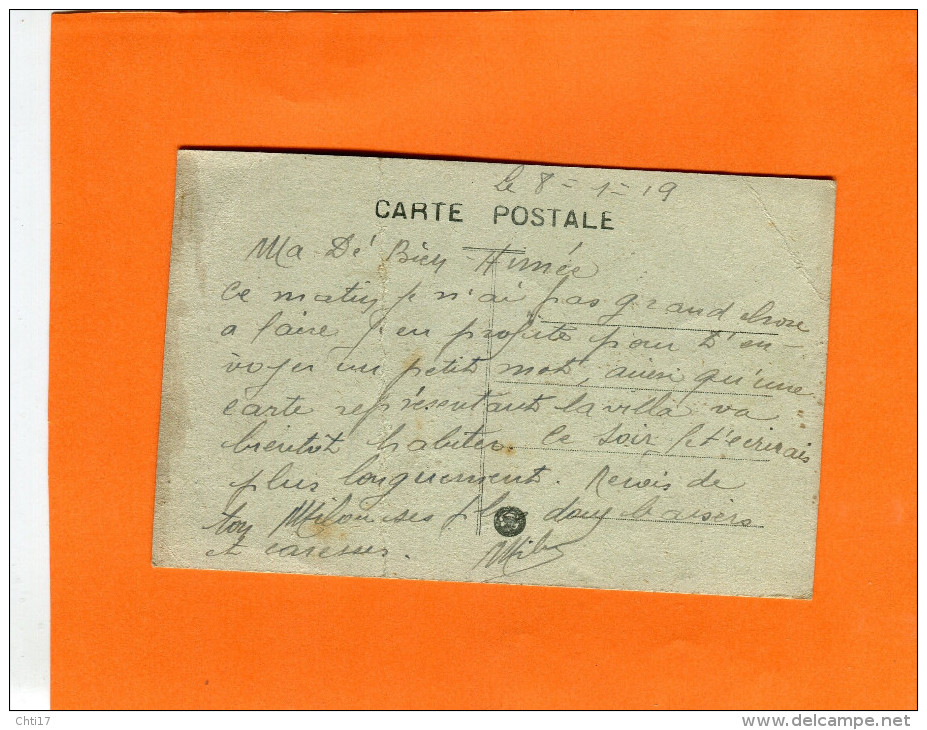 le 8 = 1 = 19
CARTE POSTALE
Ma Dé Bien Aimée
Ce matin je n'ai pas grand chose
a faire j'en profite pour t'en-
voyer un petit mot, ainsi qu'une
carte représentant la villa va
bientôt habiter. Ce soir je t'ecrirais
plus longuement. Recois de
ton Milou ses plus doux baisers
et caresses. Milou
Chti17
www.delcampe.net